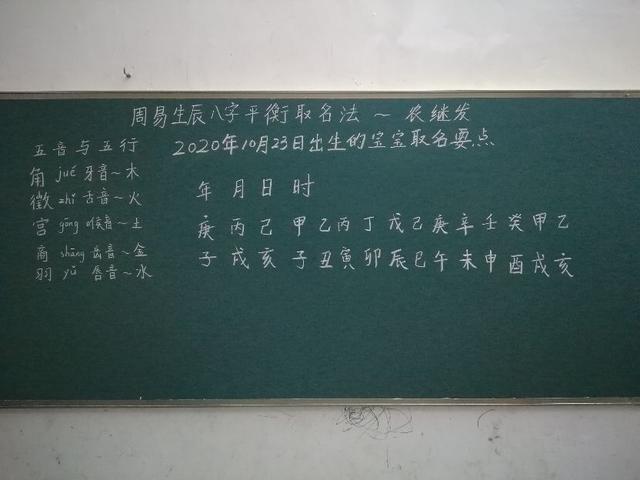 周易生辰八字平衡取名法～农继发
2020年10月23日出生的宝宝取名要点
五音与五行
角 jué 牙音～木
徵 zhǐ 舌音～火
宫 gōng 喉音～土
商 shāng 齿音～金
羽 yǔ 唇音～水
年月日时
庚丙己 甲乙丙丁戊己庚辛壬癸甲乙
子戌亥 子丑寅卯辰巳午未申酉戌亥